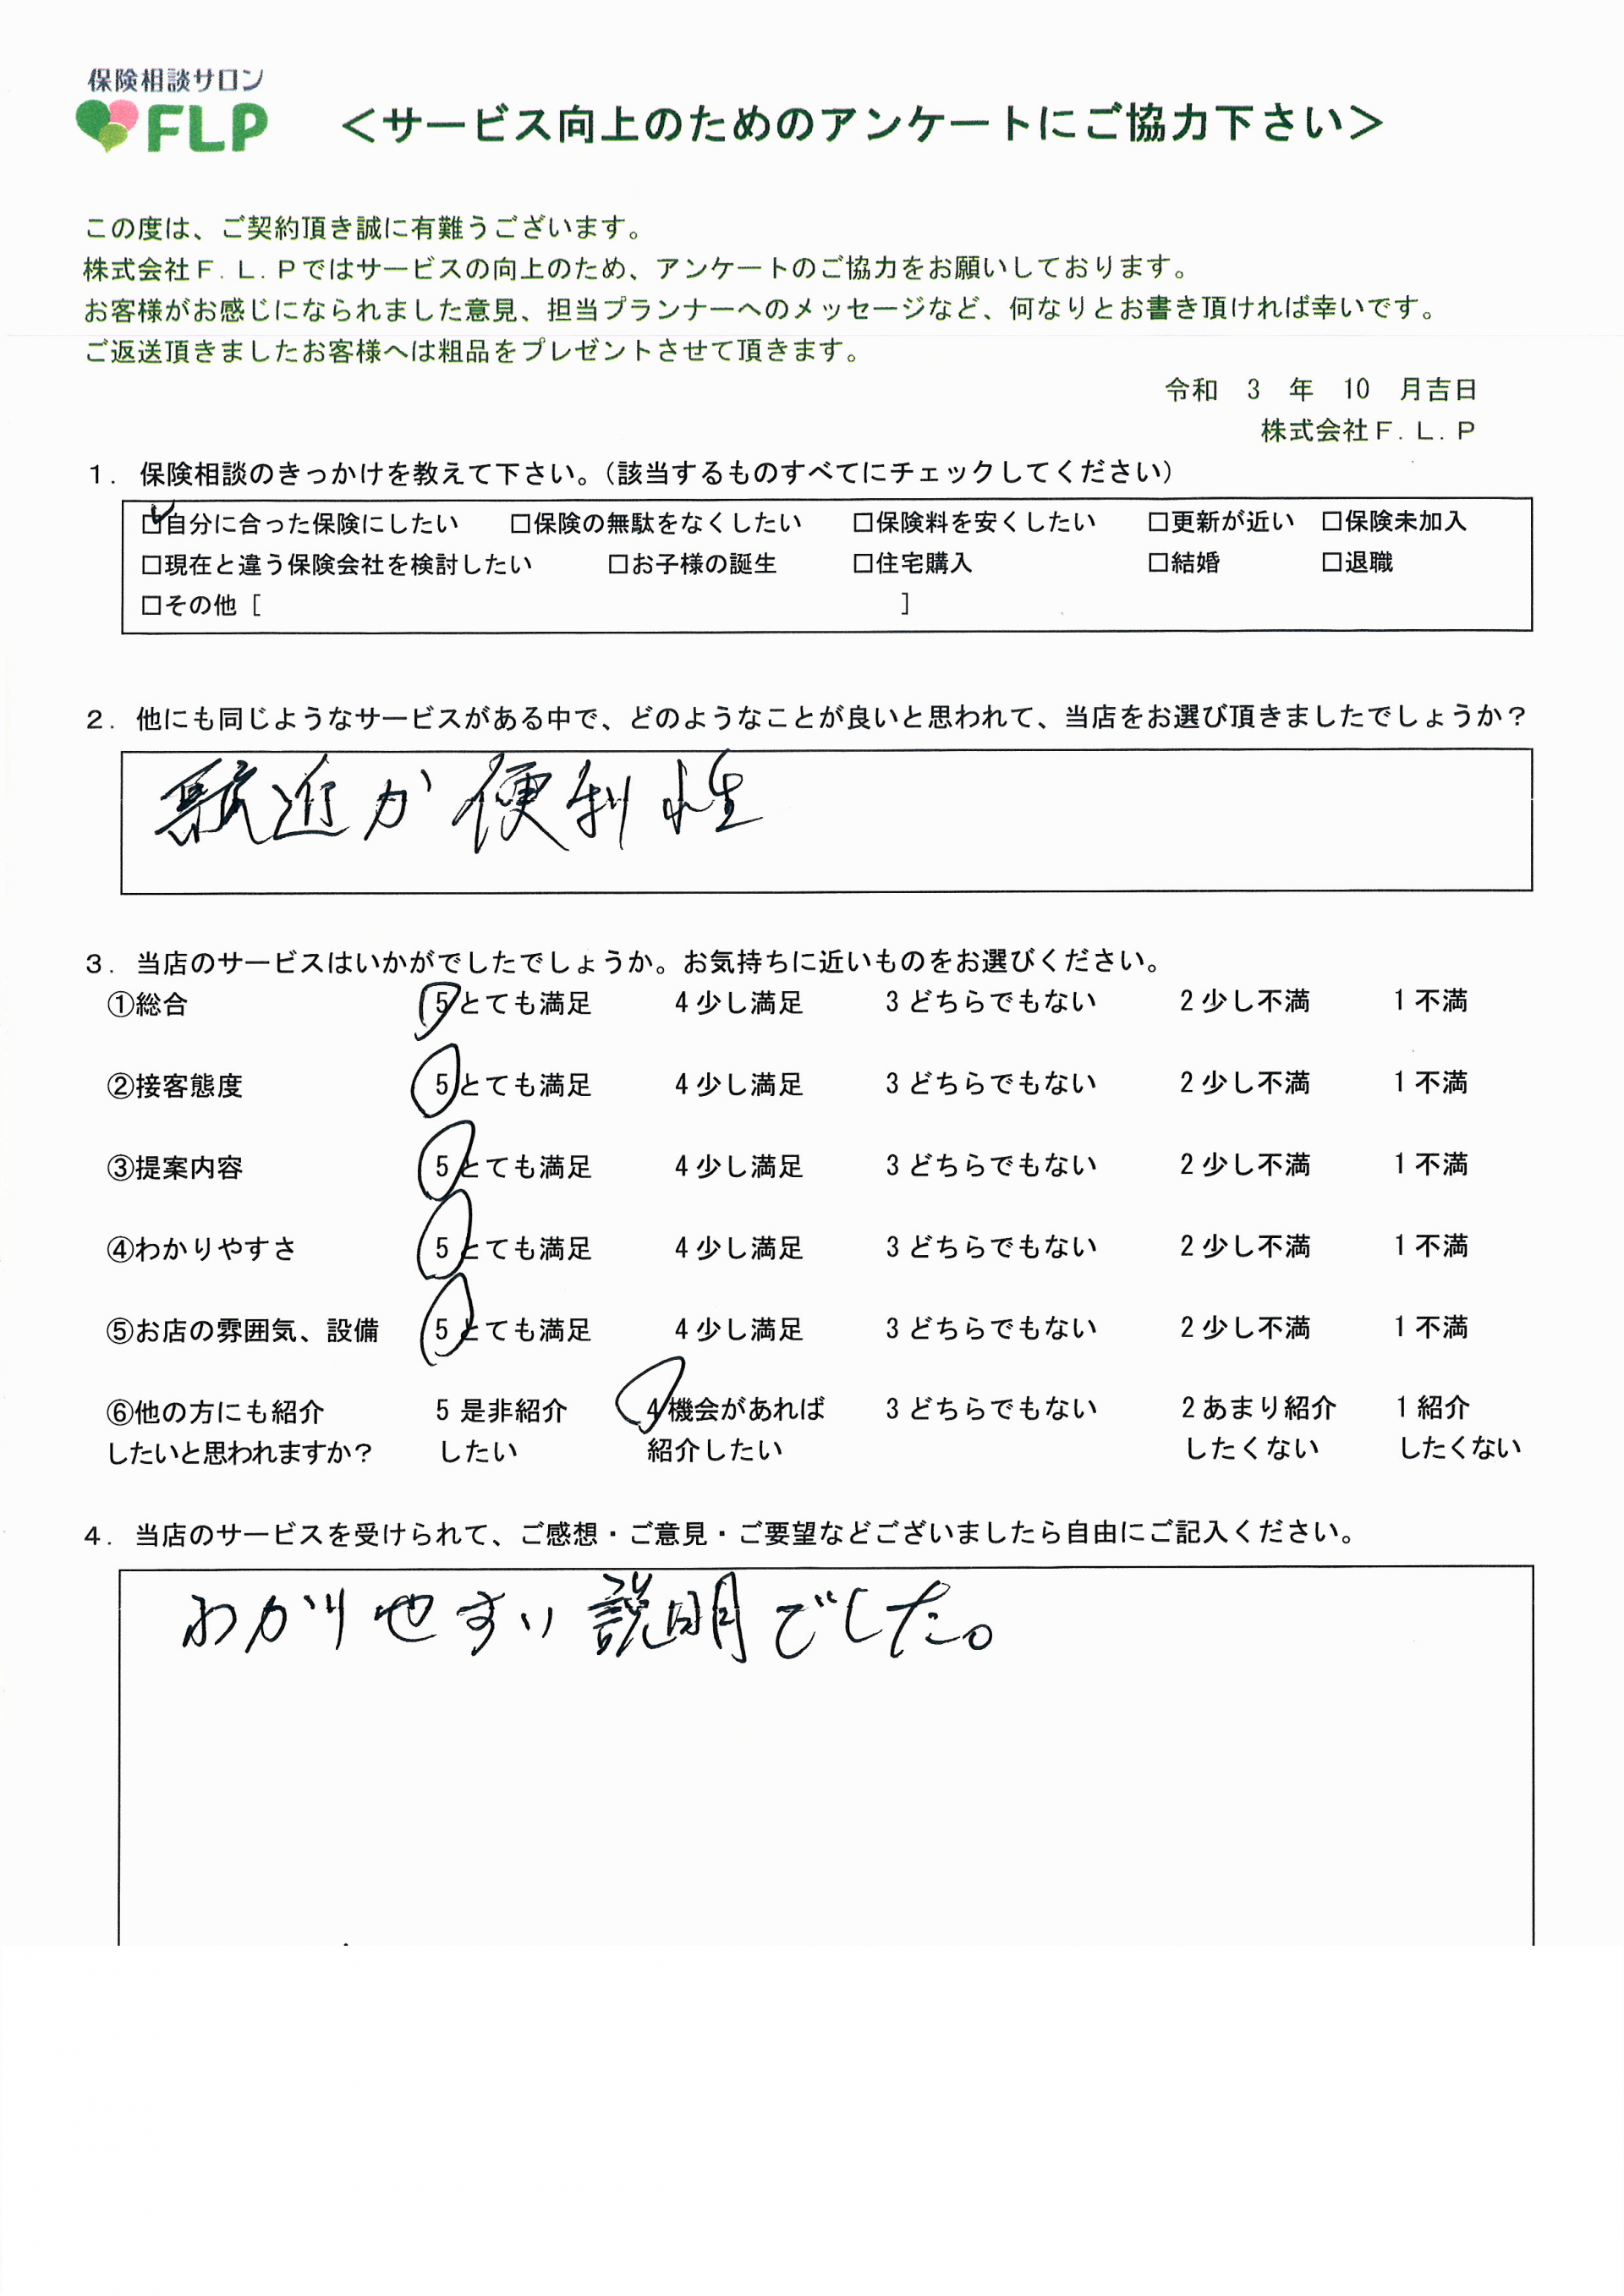 保険相談サロン
FLP
＜サービス向上のためのアンケートにご協力下さい＞
この度は、ご契約頂き誠に有難うございます。
株式会社Ｆ．Ｌ．Ｐではサービスの向上のため、アンケートのご協力をお願いしております。
お客様がお感じになられました意見、担当プランナーへのメッセージなど、何なりとお書き頂ければ幸いです。
ご返送頂きましたお客様へは粗品をプレゼントさせて頂きます。
令和 3 年 10 月吉日
株式会社Ｆ．Ｌ．Ｐ
１．保険相談のきっかけを教えて下さい。（該当するものすべてにチェックしてください）
☑自分に合った保険にしたい □保険の無駄をなくしたい □保険料を安くしたい □更新が近い □保険未加入
□現在と違う保険会社を検討したい □お子様の誕生 □住宅購入 □結婚 □退職
□その他［ ］
２．他にも同じようなサービスがある中で、どのようなことが良いと思われて、当店をお選び頂きましたでしょうか？
駅近か便利性
３．当店のサービスはいかがでしたでしょうか。お気持ちに近いものをお選びください。
①総合 5 とても満足 4 少し満足 3 どちらでもない 2 少し不満 1 不満
②接客態度 5 とても満足 4 少し満足 3 どちらでもない 2 少し不満 1 不満
③提案内容 5 とても満足 4 少し満足 3 どちらでもない 2 少し不満 1 不満
④わかりやすさ 5 とても満足 4 少し満足 3 どちらでもない 2 少し不満 1 不満
⑤お店の雰囲気、設備 5 とても満足 4 少し満足 3 どちらでもない 2 少し不満 1 不満
⑥他の方にも紹介 5 是非紹介 4 機会があれば 3 どちらでもない 2 あまり紹介 1 紹介
したいと思われますか？ したい 紹介したい したくない したくない
４．当店のサービスを受けられて、ご感想・ご意見・ご要望などございましたら自由にご記入ください。
わかりやすい説明でした。